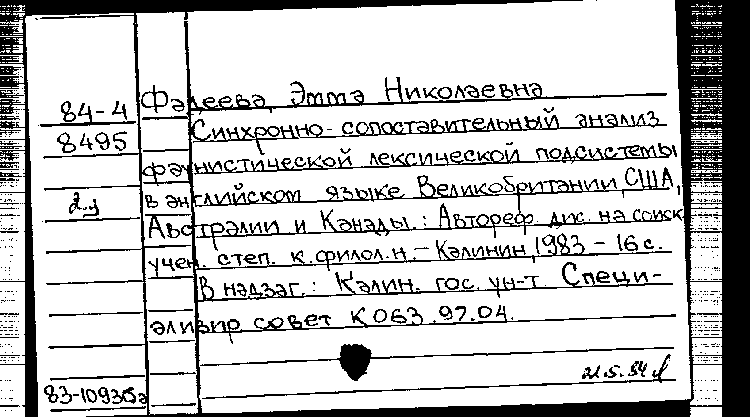 84-4 Фадеева, Эмма Николаевна
8495 Синхронно-сопоставительный анализ
фаунистической лексической подсистемы
2.у в английском языке Великобритании, США,
Австралии и Канады.: Автореф. дис. на соиск.
учен. степ. к.филол.н. - Калинин, 1983 - 16 с.
В надзаг.: Калин. гос. ун-т Специ-
ализир совет К 063.97.04.
21.5.84